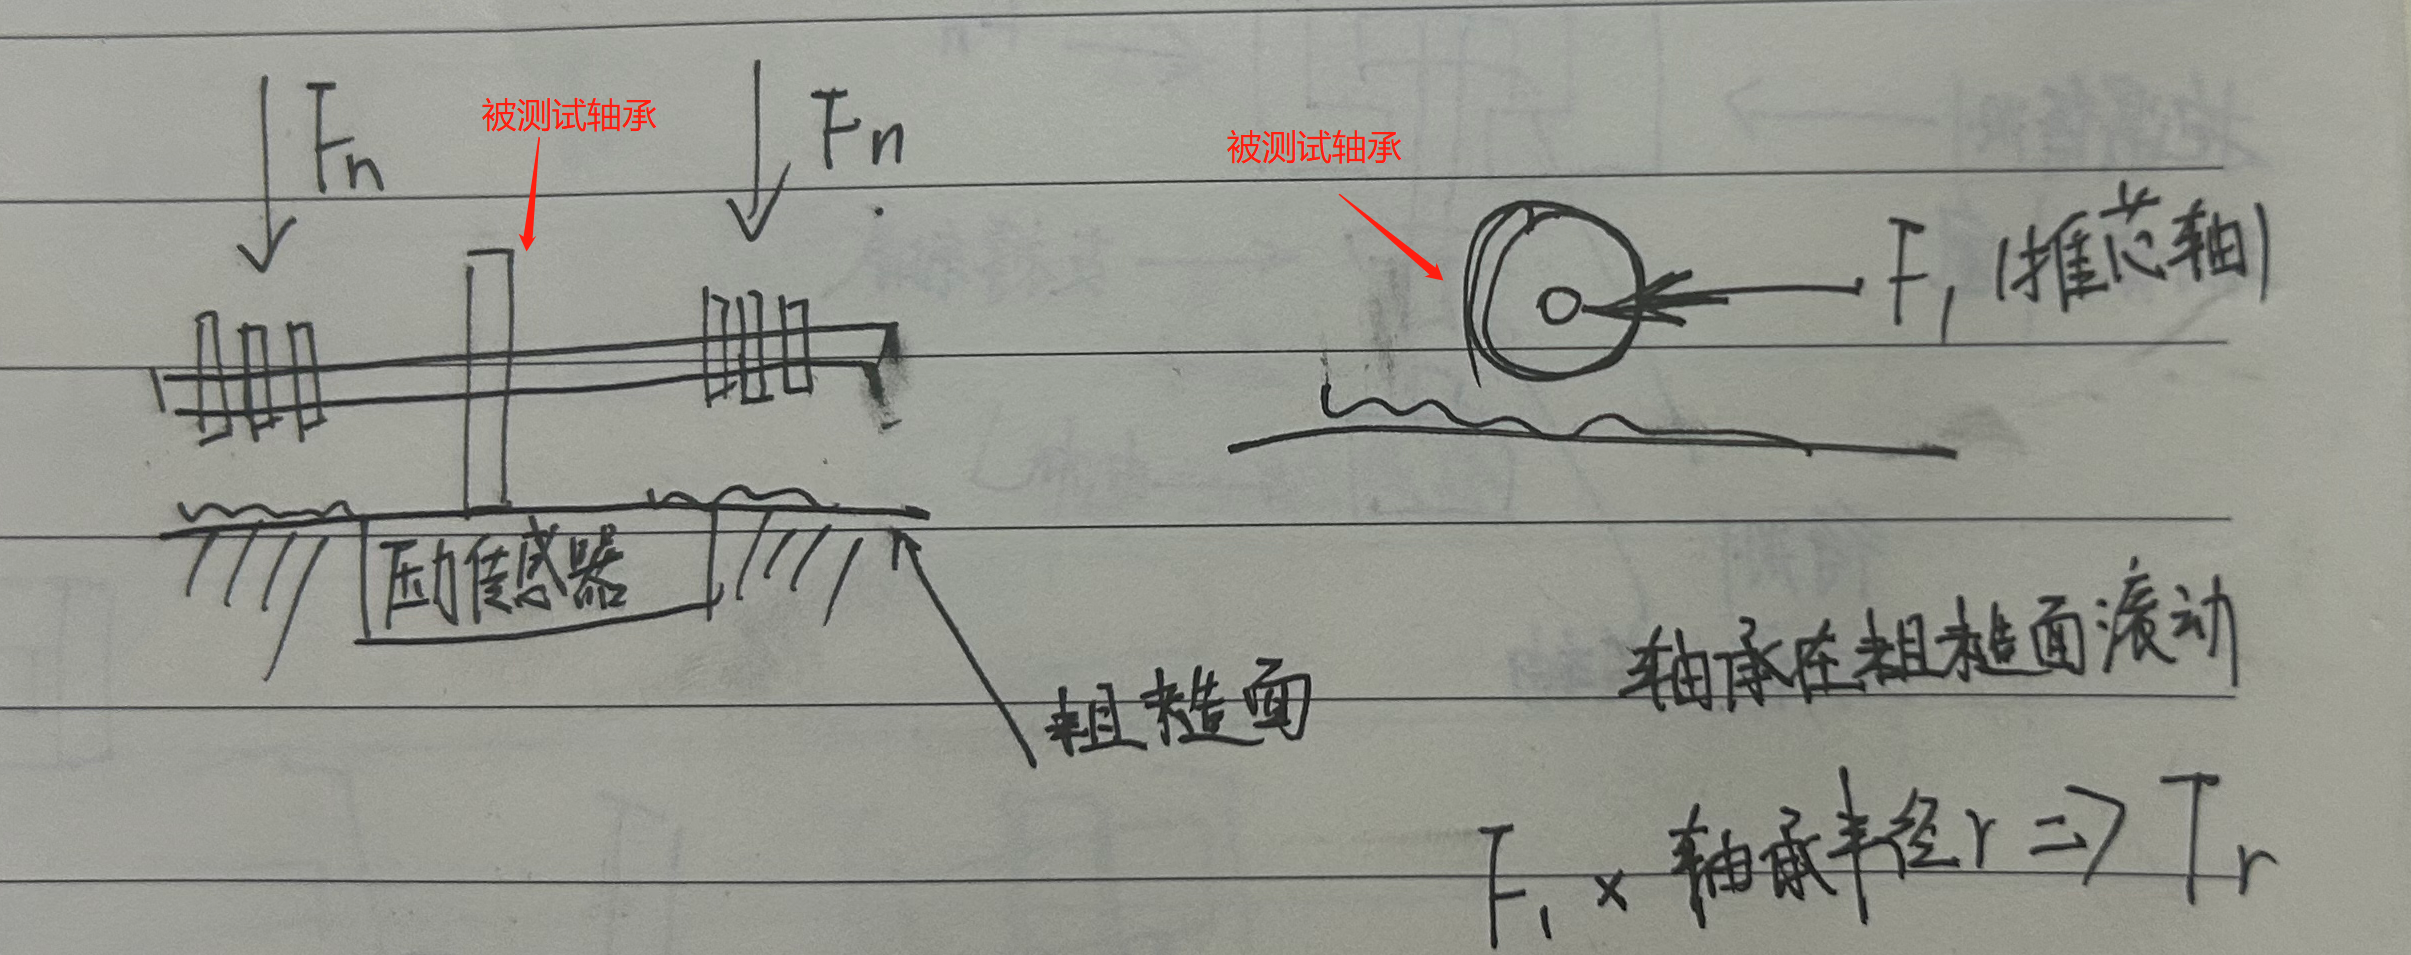 Fn
被测试轴承
Fn
被测试轴承
F1 (推芯轴)
压力传感器
粗糙面
轴承在粗糙面滚动
F1 × 轴承半径r => Tr